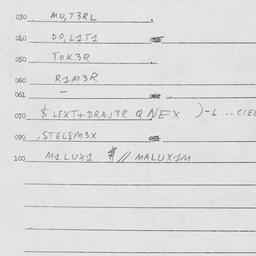 030 MU,T3RL .
040 DO,L1T1
050 TOK3R .
060 R1M3R
061 —
070 $ LEXT+DRAJ3R Q NEX )-L...CIE
090 ,STEL8M3X
100 M1LUX1 # // MALUX1M